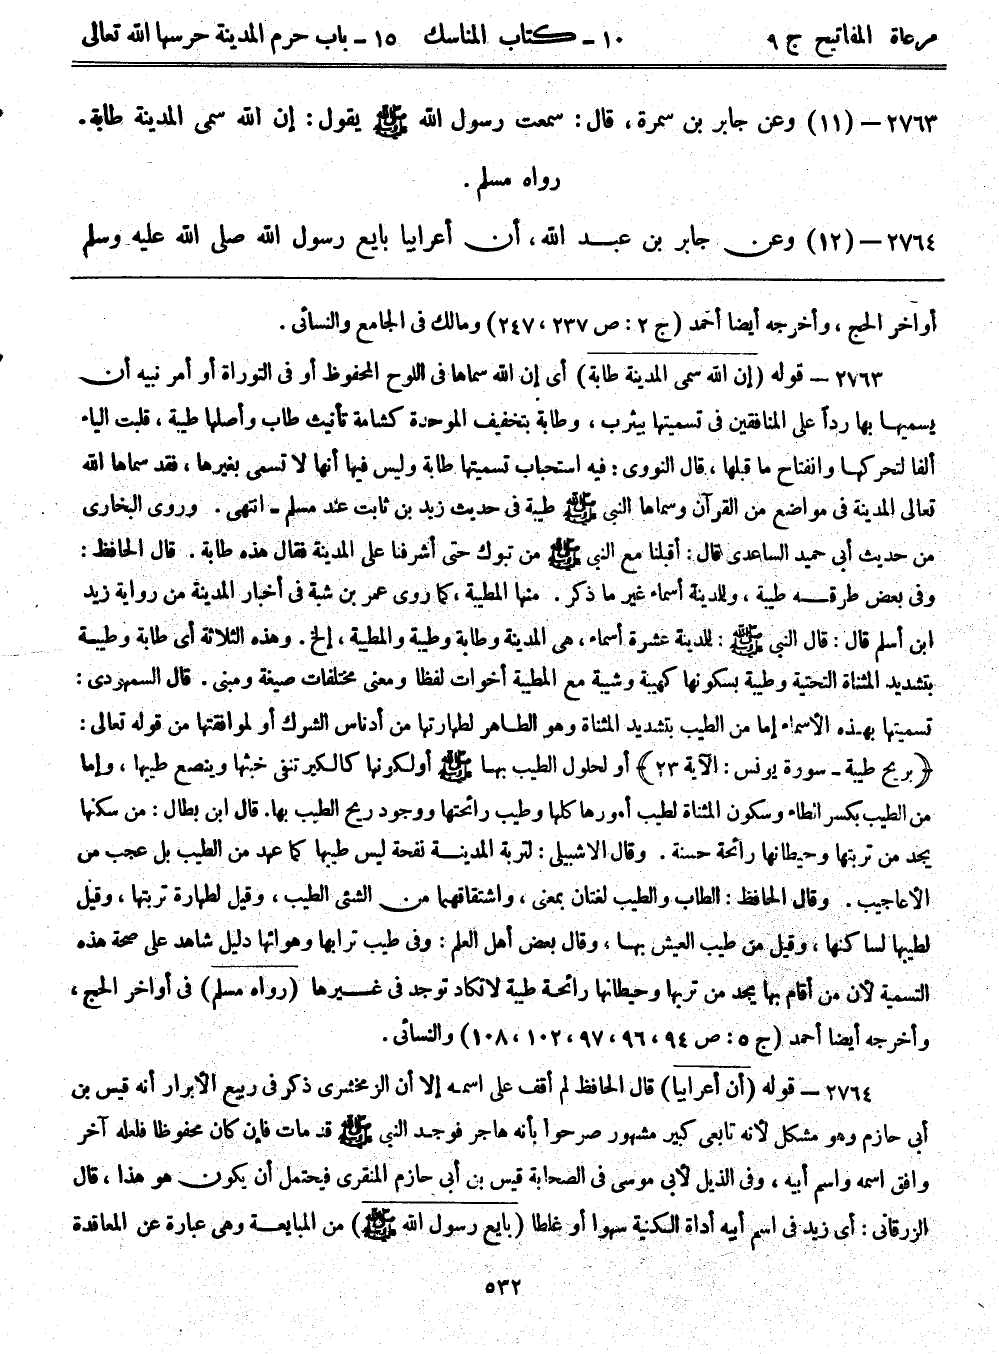 مرعاة المفاتيح ج ٩ ١٠ - كتاب المناسك ١٥ - باب حرم المدينة حرسها الله تعالى
٢٧٦٣ – (١١) وعن جابر بن سمرة، قال: سمعت رسول الله ﷺ يقول: إن الله سمى المدينة طابة.
رواه مسلم.
٢٧٦٤ – (١٢) وعن جابر بن عبد الله، أن أعرابيا بايع رسول الله صلى الله عليه وسلم
أواخر الحج، وأخرجه أيضا أحمد (ج ٢: ص ٢٣٧، ٢٤٧) ومالك فى الجامع والنسائى.
٢٧٦٣ – قوله (إن الله سمى المدينة طابة) أى إن الله سماها فى اللوح المحفوظ أو فى التوراة أو أمر نبيه أن
يسميها بها رداً على المنافقين فى تسميتها بيثرب، وطابة بتخفيف الموحدة كشامة تأنيث طاب وأصلها طيبة، قلبت الياء
ألفا لتحركها وانفتاح ما قبلها، قال النووى: فيه استحباب تسميتها طابة وليس فيها أنها لا تسمى بغيرها، فقد سماها الله
تعالى المدينة فى مواضع من القرآن وسماها النبى ﷺ طيبة فى حديث زيد بن ثابت عند مسلم - انتهى. وروى البخارى
من حديث أبى حميد الساعدى قال: أقبلنا مع النبى ﷺ من تبوك حتى أشرفنا على المدينة فقال هذه طابة. قال الحافظ:
وفى بعض طرقه طيبة، وللمدينة أسماء غير ما ذكر. منها المطيبة، كما روى عمر بن شبة فى أخبار المدينة من رواية زيد
ابن أسلم قال: قال النبى ﷺ: للمدينة عشرة أسماء، هى المدينة وطابة وطيبة والمطيبة، إلخ. وهذه الثلاثة أى طابة وطيبة
بتشديد المثناة التحتية وطيبة بسكونها كهيبة وشيبة مع المطيبة أخوات لفظا ومعنى مختلفات صيغة ومبنى. قال السمهودى:
تسميتها بهذه الأسماء إما من الطيب بتشديد المثناة وهو الطاهر لطهارتها من أدناس الشرك أو لموافقتها من قوله تعالى:
﴿بريح طيبة - سورة يونس: الآية ٢٣﴾ أو لحلول الطيب بها ﷺ أولكونها كالكير تنفى خبثها وينصع طيبها، وإما
من الطيب بكسر الطاء وسكون المثناة لطيب أمورها كلها وطيب رائحتها ووجود ريح الطيب بها. قال ابن بطال: من سكنها
يجد من تربتها وحيطانها رائحة حسنة. وقال الاشبيلى: لتربة المدينة نفحة ليس طيبها كما عهد من الطيب بل عجب من
الأعاجيب. وقال الحافظ: الطاب والطيب لغتان بمعنى، واشتقاقهما من الشئى الطيب، وقيل لطهارة تربتها، وقيل
لطيبها لساكنها، وقيل من طيب العيش بها، وقال بعض أهل العلم: وفى طيب ترابها وهوائها دليل شاهد على صحة هذه
التسمية لأن من أقام بها يجد من تربها وحيطانها رائحة طيبة لاتكاد توجد فى غيرها (رواه مسلم) فى أواخر الحج،
وأخرجه أيضا أحمد (ج ٥: ص ٩٤، ٩٦، ٩٧، ١٠٢، ١٠٨) والنسائى.
٢٧٦٤ – قوله (أن أعرابيا) قال الحافظ لم أقف على اسمه إلا أن الزمخشرى ذكر فى ربيع الأبرار أنه قيس بن
أبى حازم وهو مشكل لأنه تابعى كبير مشهور صرحوا بأنه هاجر فوجد النبى ﷺ قد مات فإن كان محفوظا فلعله آخر
وافق اسمه واسم أبيه، وفى الذيل لأبى موسى فى الصحابة قيس بن أبى حازم المنقرى فيحتمل أن يكون هو هذا، قال
الزرقانى: أى زيد فى اسم أبيه أداة الكنية سهوا أو غلطا (بايع رسول الله ﷺ) من المبايعة وهى عبارة عن المعاقدة
٥٣٢